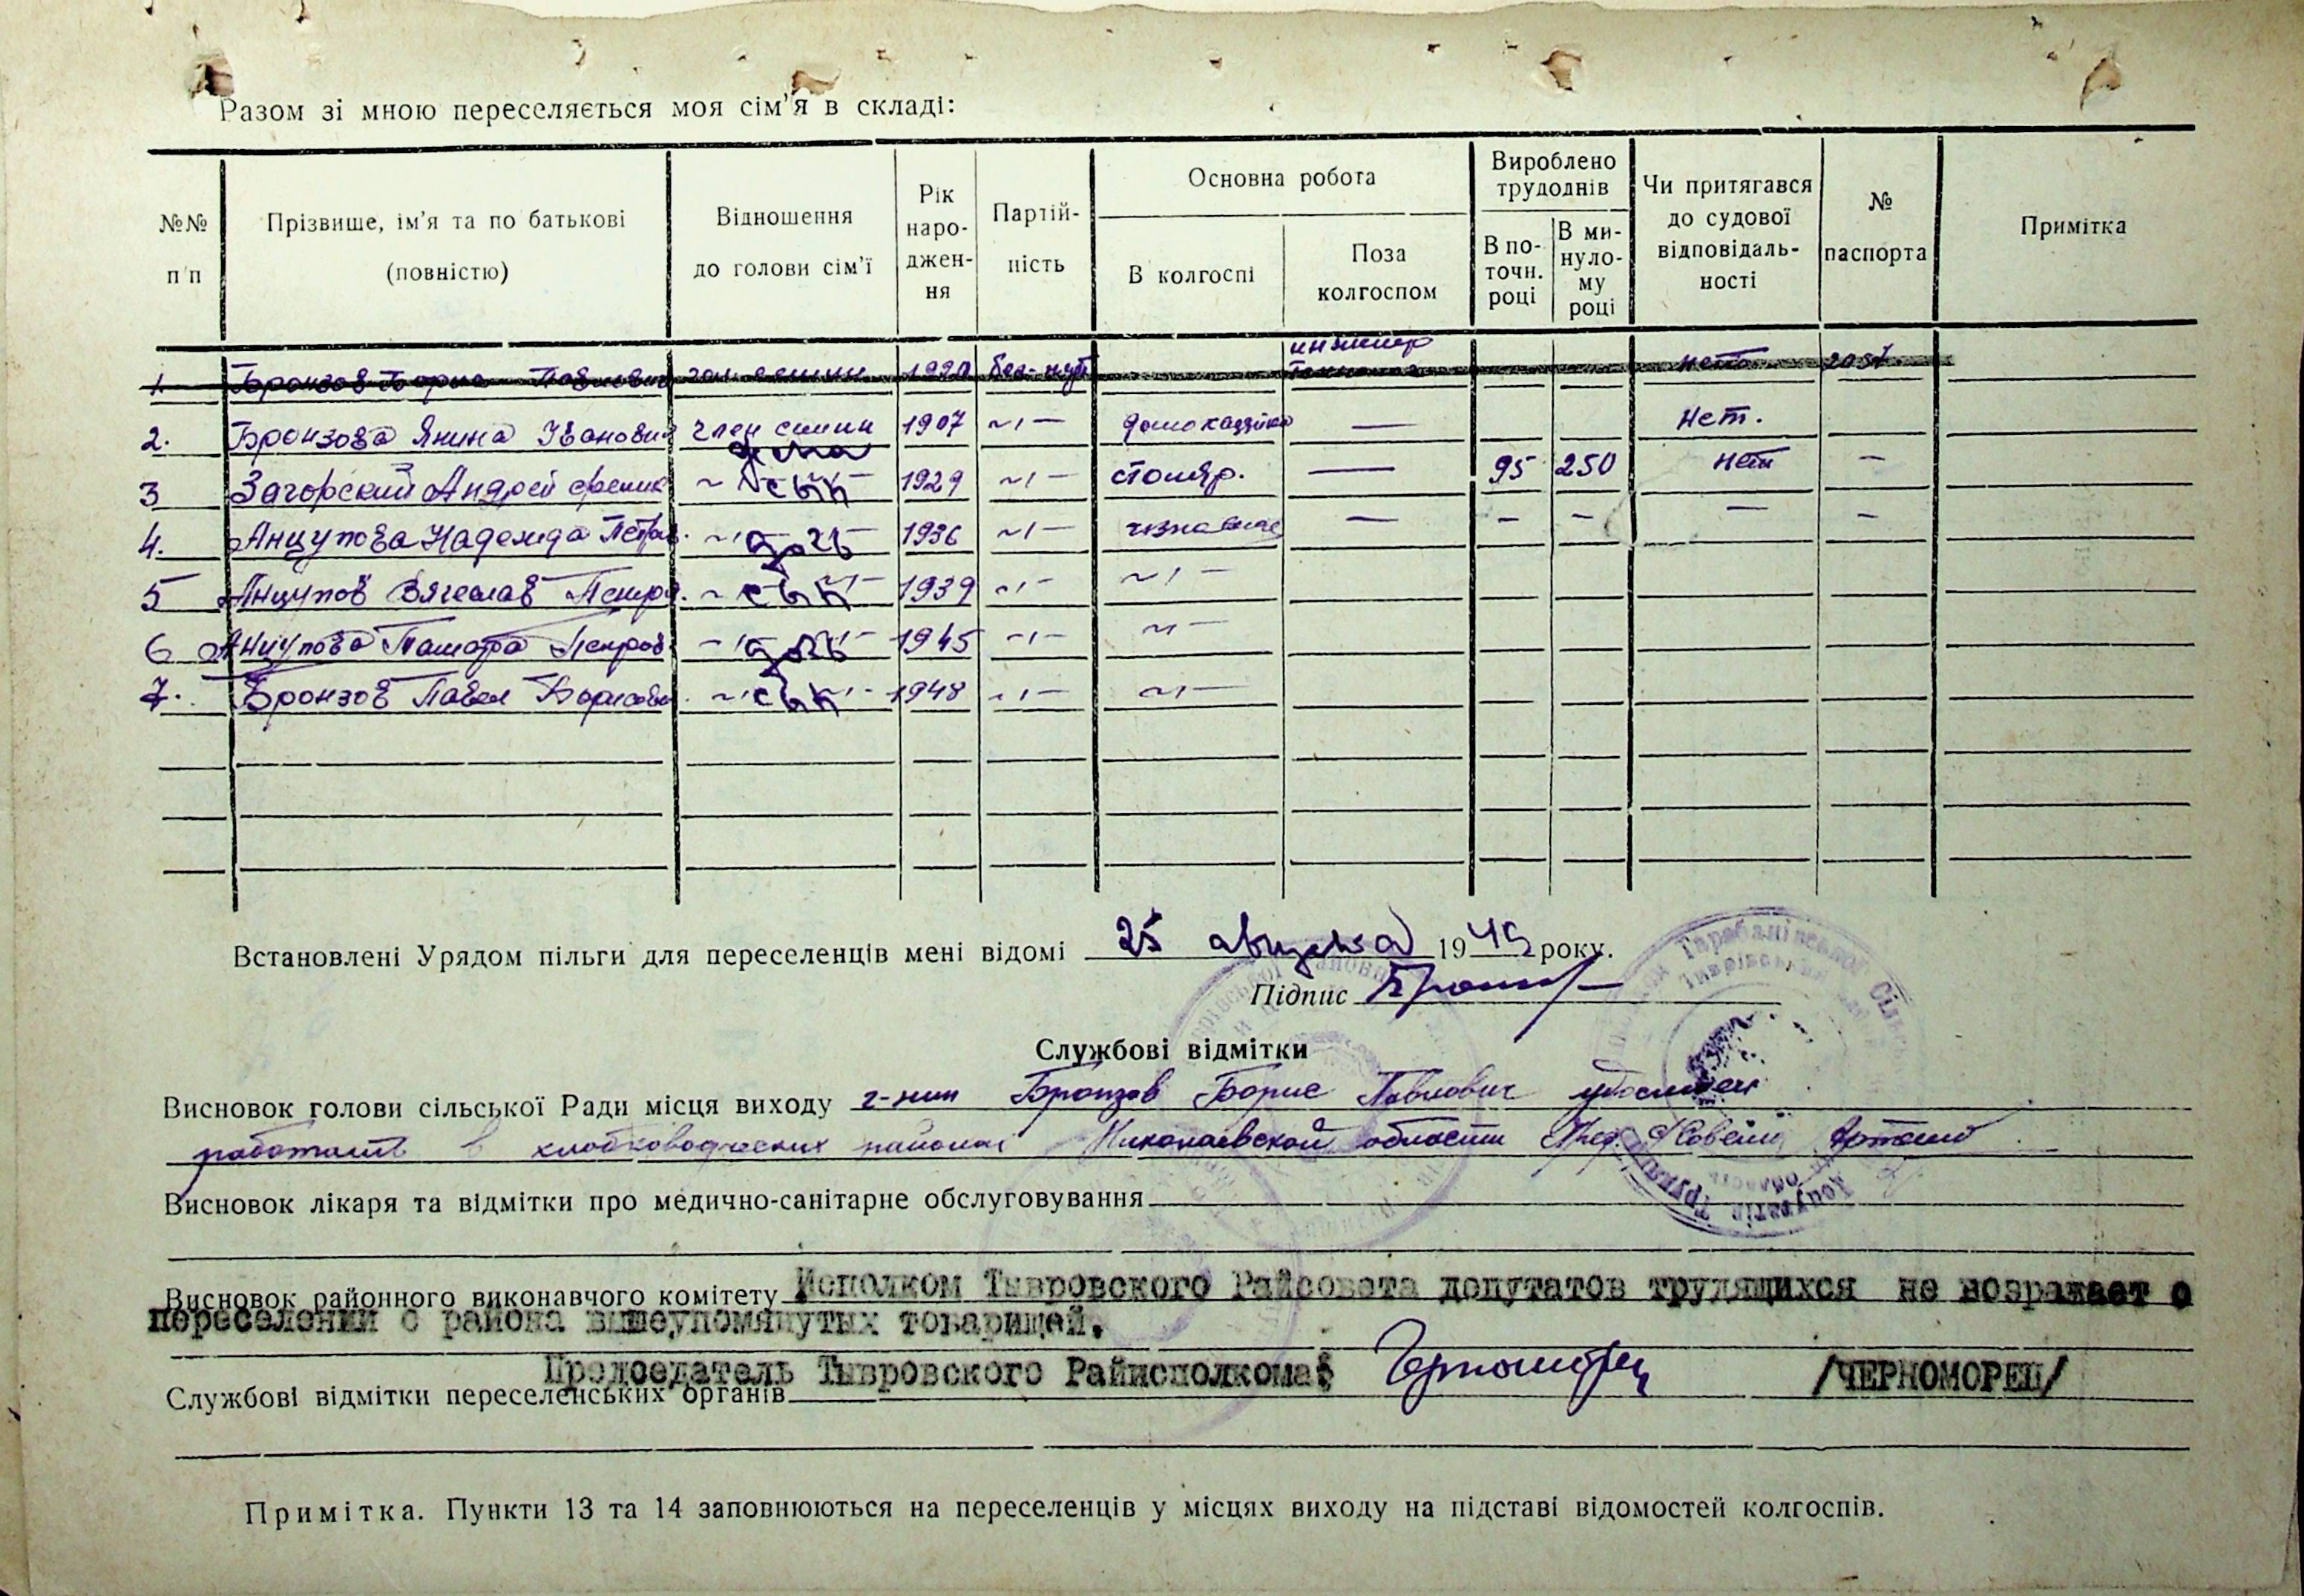 Разом зі мною переселяється моя сім'я в складі:
№№ п/п | Прізвище, ім'я та по батькові (повністю) | Відношення до голови сім'ї | Рік народження | Партійність | Основна робота | Вироблено трудоднів | Чи притягався до судової відповідальності | № паспорта | Примітка
В колгоспі | Поза колгоспом | В поточн. році | В минулому році
1. Бронзов Борис Павлович інженер нет
2. Бронзова Янина Ивановна член семьи жена 1907 ~ı— домохазяйка — Нет.
3 Загорский Андрей ~ сын 1929 ~ı— столяр. — 95 250 нет —
4. Анцупова Надежда Петров. ~ дочь 1936 ~ı— — — — — —
5 Анцупов Вячеслав Петро. ~ сын 1939 ~ı— ~ı—
6 Анцупова Тамара Петров. ~ дочь 1945 ~ı— ~ı—
7. Бронзов Павел Борисови ~ сын 1948 ~ı— ~ı—
Встановлені Урядом пільги для переселенців мені відомі 25 августа 1949 року.
Підпис
Службові відмітки
Висновок голови сільської Ради місця виходу г-нин Бронзов Борис Павлович
работать в хлопководческих районах Николаевской области
Висновок лікаря та відмітки про медично-санітарне обслуговування
Висновок районного виконавчого комітету Исполком Тывровского Райсовета депутатов трудящихся не возражает о
переселении с района вышеупомянутых товарищей.
Председатель Тывровского Райисполкома: /ЧЕРНОМОРЕЦ/
Службові відмітки переселенських органів
Примітка. Пункти 13 та 14 заповнюються на переселенців у місцях виходу на підставі відомостей колгоспів.